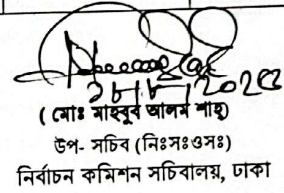 ( মোঃ মাহবুব আলম শাহ্)
উপ- সচিব (নিঃসঃওসঃ)
নির্বাচন কমিশন সচিবালয়, ঢাকা